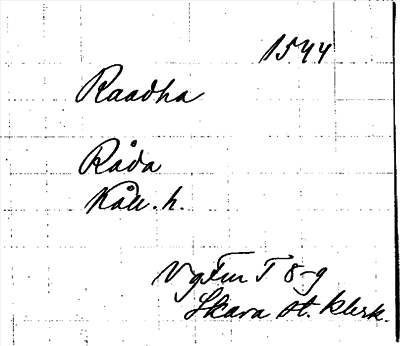 1544
Raadha
Råda
Kåll. h.
VgFmr T 8-9
Skara st. klerk.